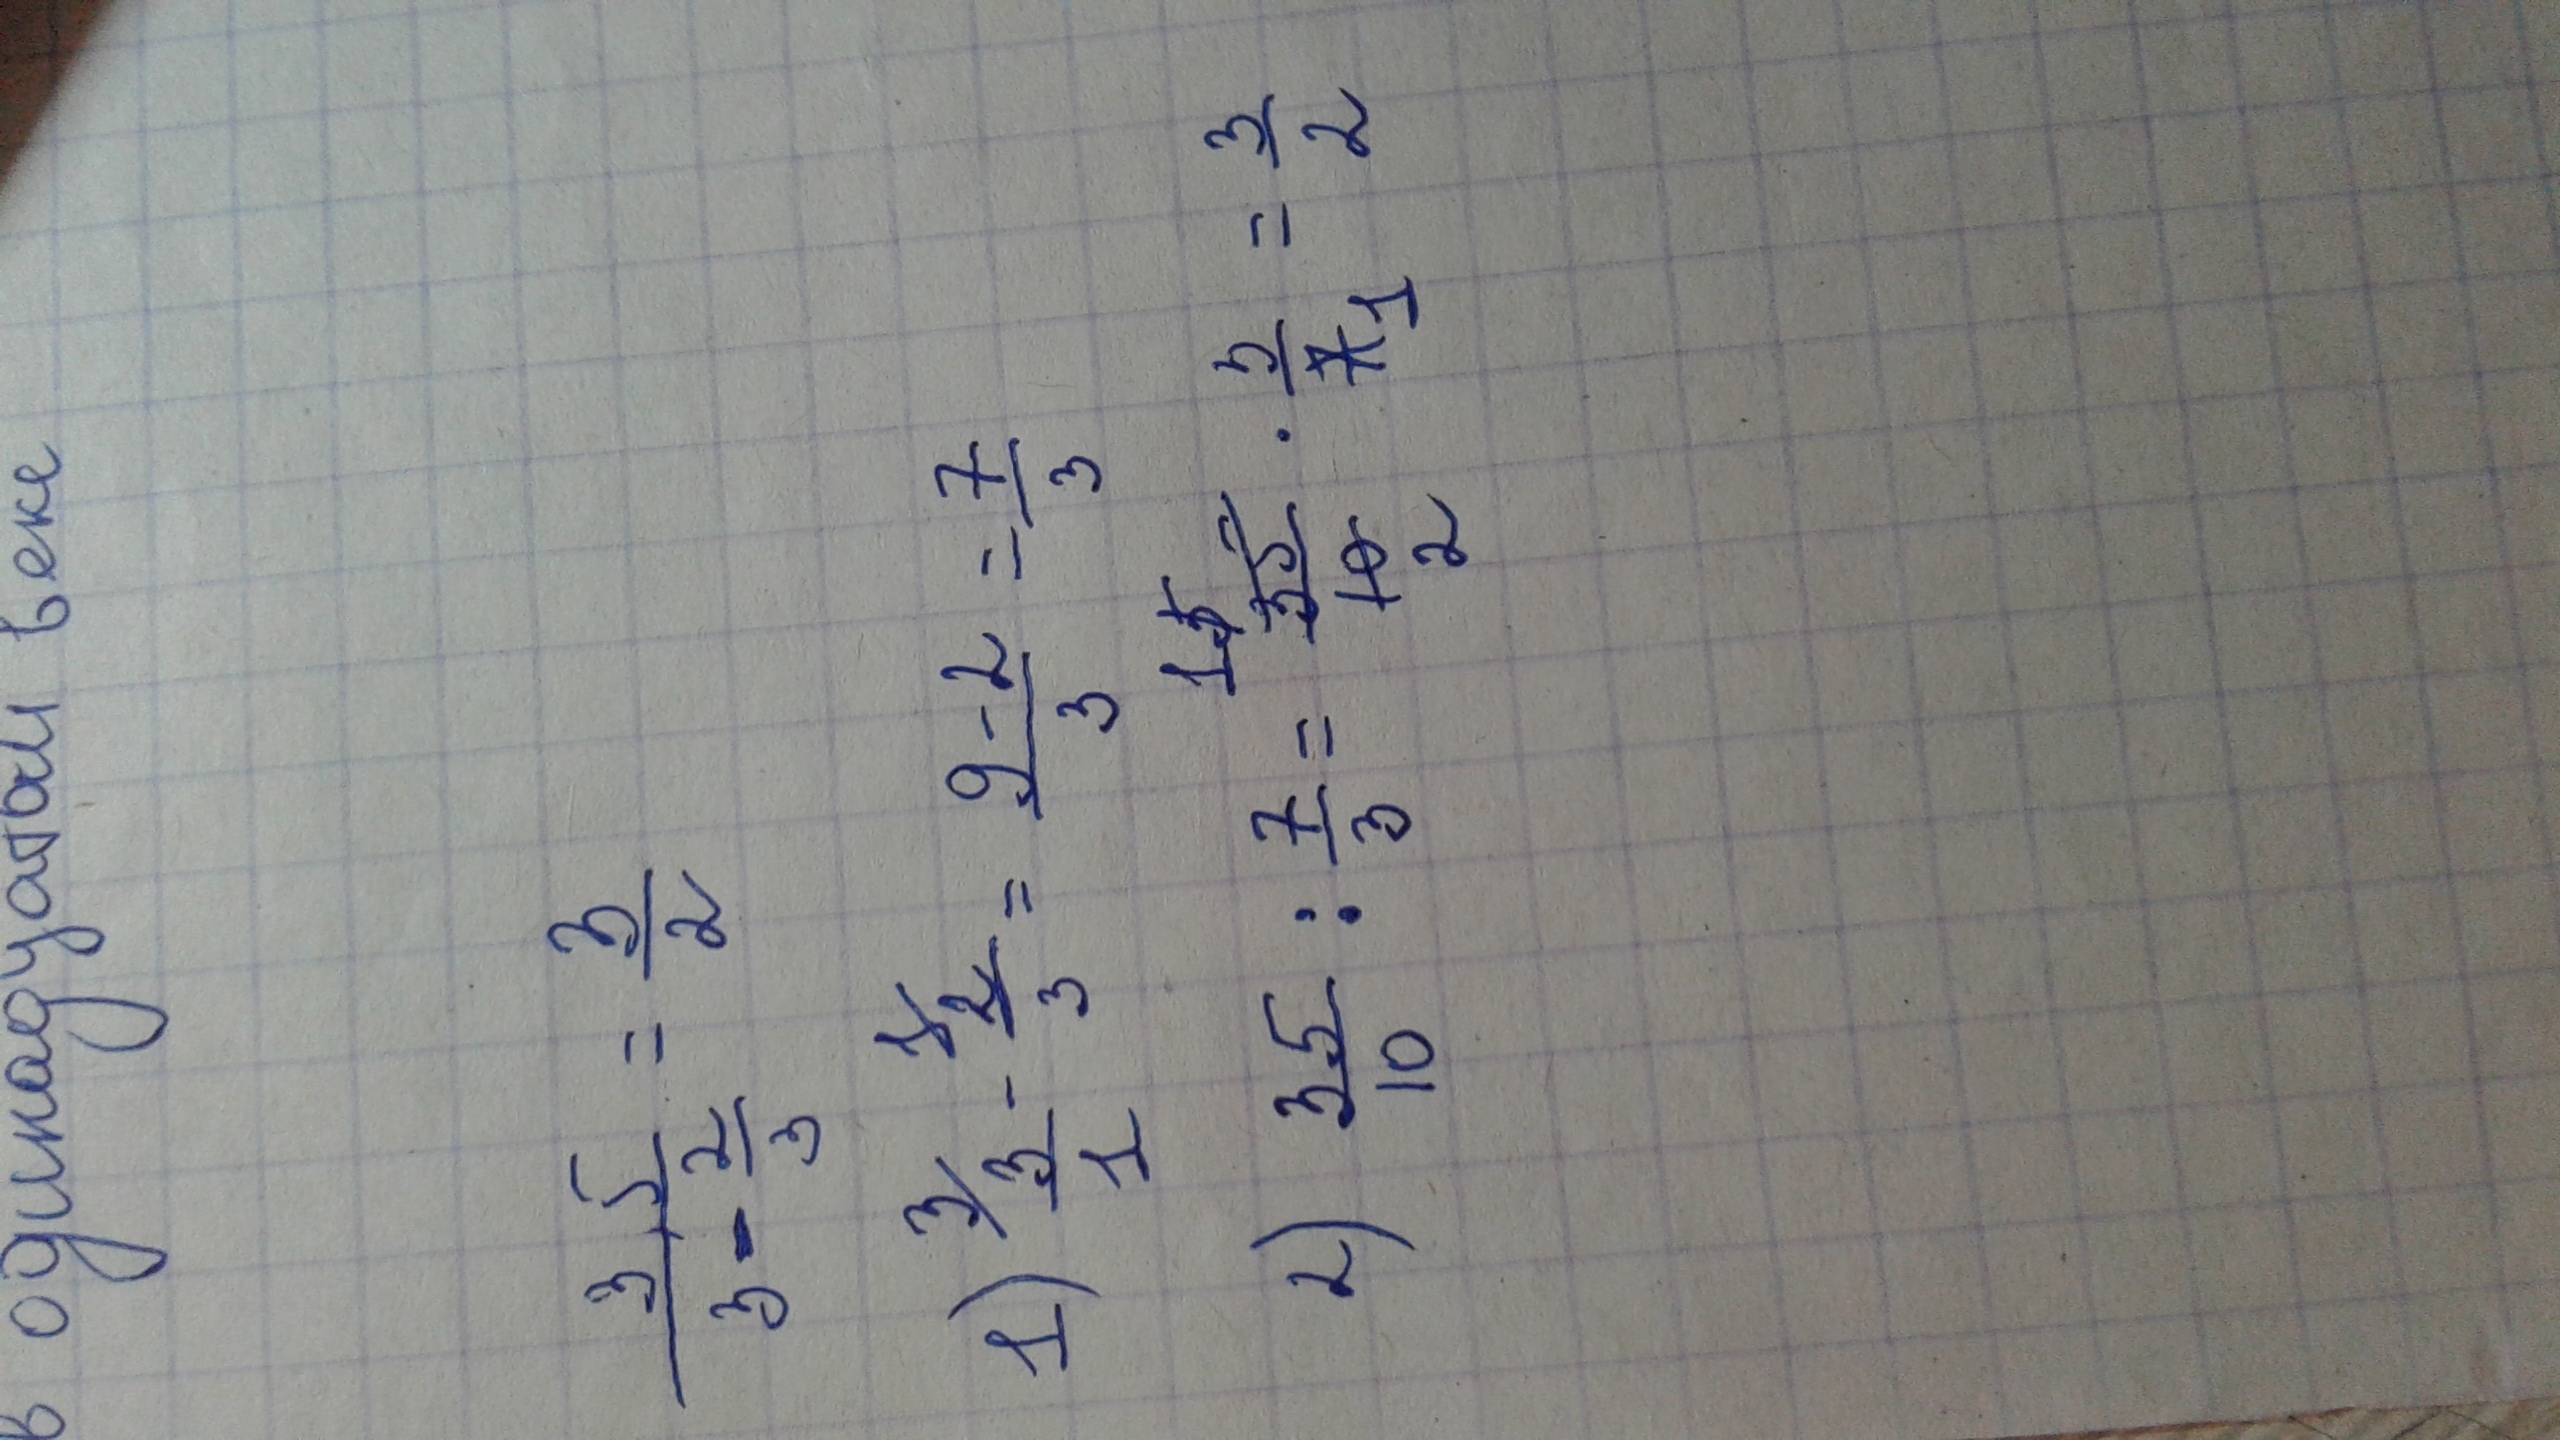 в одинадцатом веке
3,5 / (3 - 2/3) = 3/2
1) 3/1 - 2/3 = (9-2)/3 = 7/3
2) 35/10 : 7/3 = 35/10 · 3/7 = 3/2